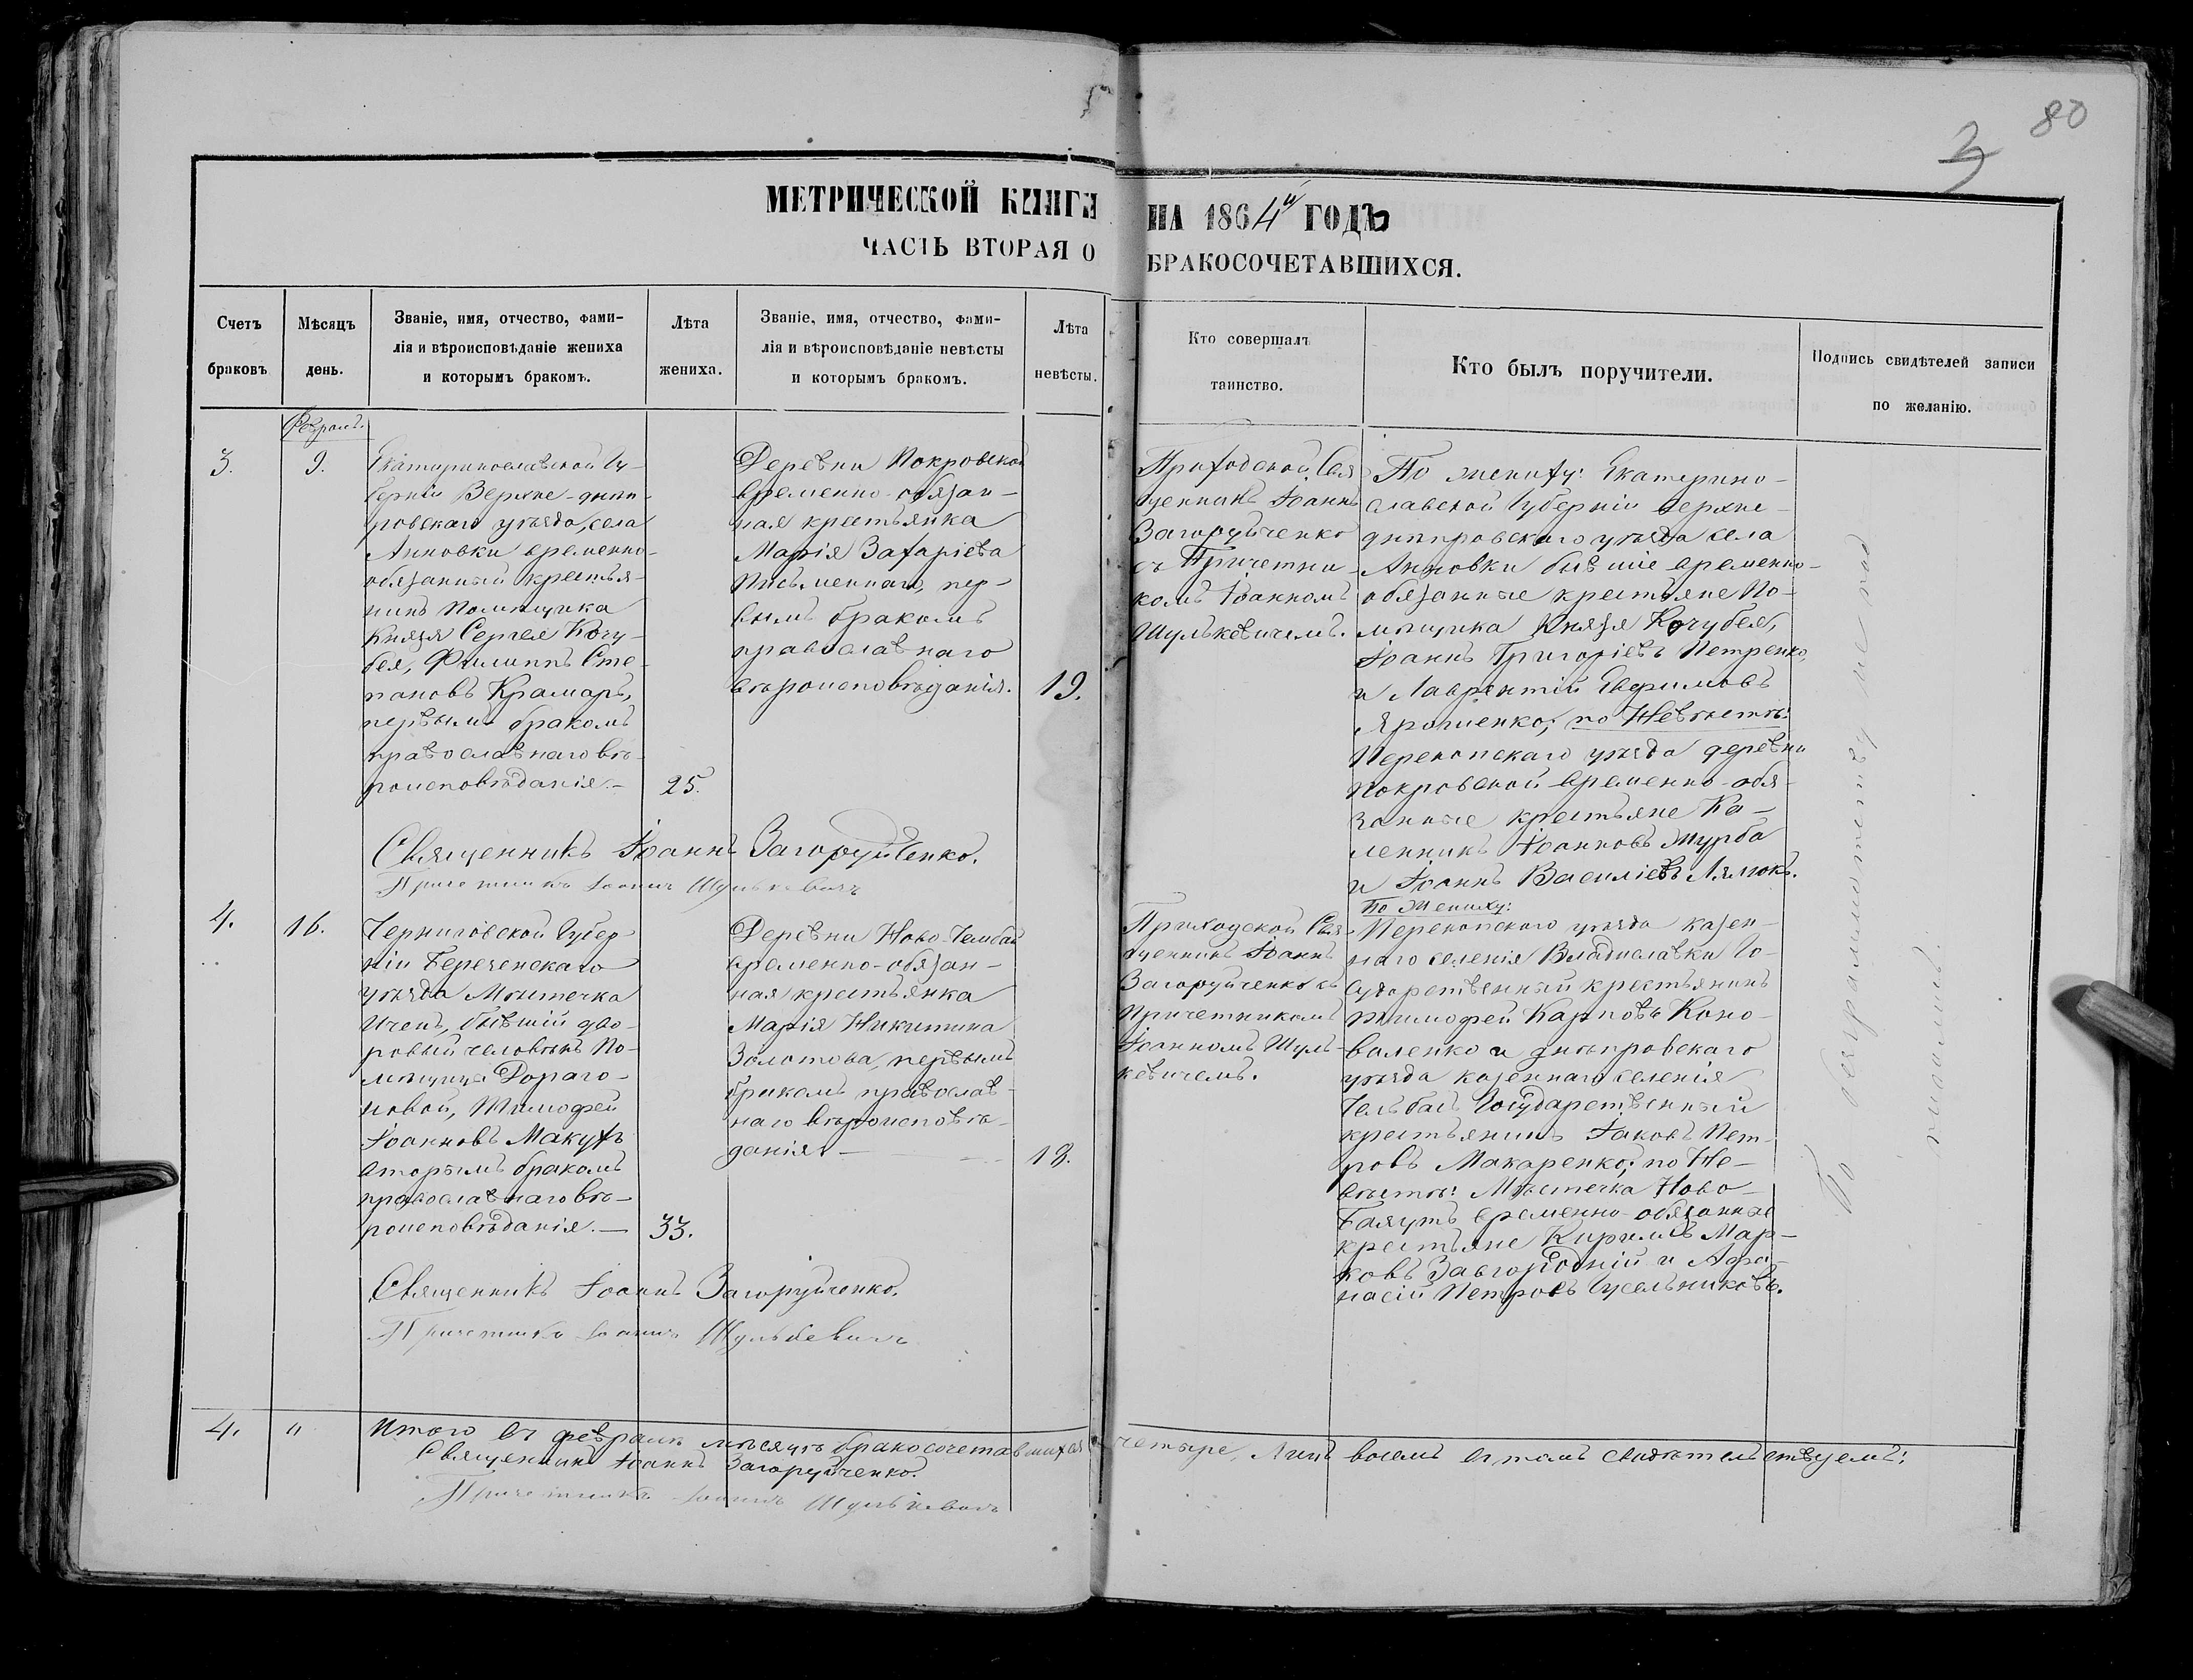 80
3
МЕТРИЧЕСКОЙ КНИГИ НА 1864й ГОДЪ
ЧАСТЬ ВТОРАЯ О БРАКОСОЧЕТАВШИХСЯ.
Счетъ
браковъ
Мѣсяцъ
день.
Званіе, имя, отчество, фами-
лія и вѣроисповѣданіе жениха
и которымъ бракомъ.
Лѣта
жениха.
Званіе, имя, отчество, фами-
лія и вѣроисповѣданіе невѣсты
и которымъ бракомъ.
Лѣта
невѣсты.
Кто совершалъ
таинство.
Кто былъ поручители.
Подпись свидѣтелей записи
по желанію.
3.
9.
Екатеринославской Гу-
берніи Верхне-днѣп-
ровскаго уѣзда, села
Анновки временно-
обязанный крестья-
нинъ Помѣщика
Князя Сергея Кочу-
бея, Филиппъ Сте-
пановъ Крамаръ,
первымъ бракомъ
православнаго вѣ-
роисповѣданія.-
25.
Деревни Покровской
временно-обязан-
ная крестьянка
Марія Захаріева
Письменная, пер-
вымъ бракомъ
православнаго
вѣроисповѣданія.
19.
Приходской Свя-
щенникъ Іоаннъ
Загоруйченко
съ Причетни-
комъ Іоанномъ
Шулькевичемъ.
По жениху: Екатерино-
славской Губерніи Верхне-
днѣпровскаго уѣзда села
Анновки бывшіе временно-
обязанные крестьяне По-
мѣщика Князя Кочубея,
Іоаннъ Григоріевъ Петренко,
и Лаврентій Евфимовъ
Ярошенко; по Невѣстѣ:
Перекопскаго уѣзда деревни
Покровской временно-обя-
занные крестьяне Ка-
ленникъ Іоанновъ
и Іоаннъ Василіевъ
Священникъ Іоаннъ Загоруйченко.
Причетникъ Іоаннъ Шулькевичъ
4.
16.
Черниговской Губер-
ніи
уѣзда Мѣстечка
Ичень, бывшій дво-
ровый человѣкъ По-
мѣщицы Дораго-
новой, Тимофей
Іоанновъ Макухъ
вторымъ бракомъ
православнаго вѣ-
роисповѣданія.-
33.
Деревни Ново-
временно-обязан-
ная крестьянка
Марія Никитина
Золотова, первымъ
бракомъ православ-
наго вѣроисповѣ-
данія.-
18.
Приходской Свя-
щенникъ Іоаннъ
Загоруйченко съ
Причетникомъ
Іоанномъ Шуль-
кевичемъ.
По Жениху:
Перекопскаго уѣзда казен-
наго селенія Владиславки Го-
сударственный крестьянинъ
Тимофей Карповъ Коно-
валенко и Днѣпровскаго
уѣзда казеннаго селенія
Чельбасъ Государственный
крестьянинъ Іаковъ Пет-
ровъ Макаренко; по Не-
вѣстѣ: Мѣстечка Ново-
Баяутъ временно-обязанные
крестьяне Кирилъ Мар-
ковъ Завгородній и Афа-
насій Петровъ Гусельниковъ.
По безграмотству не под-
писались.
Священникъ Іоаннъ Загоруйченко.
Причетникъ Іоаннъ Шулькевичъ
4.
"
Итого въ февралѣ мѣсяцѣ бракосочетавшихся четыре, лицъ восемь въ томъ свидѣтельствуемъ:
Священникъ Іоаннъ Загоруйченко.
Причетникъ Іоаннъ Шулькевичъ